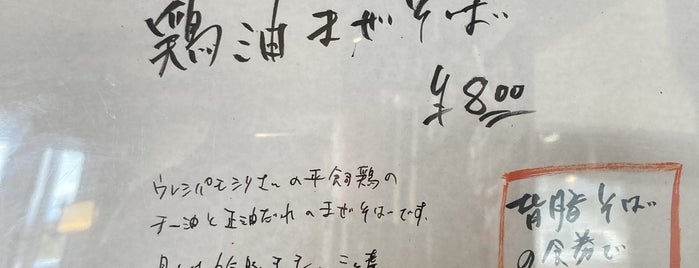 鶏油まぜそば
¥800
ウレシパモシリさんの平飼鶏の
チー油と正油だれのまぜそばです。
背脂そば
の食券で